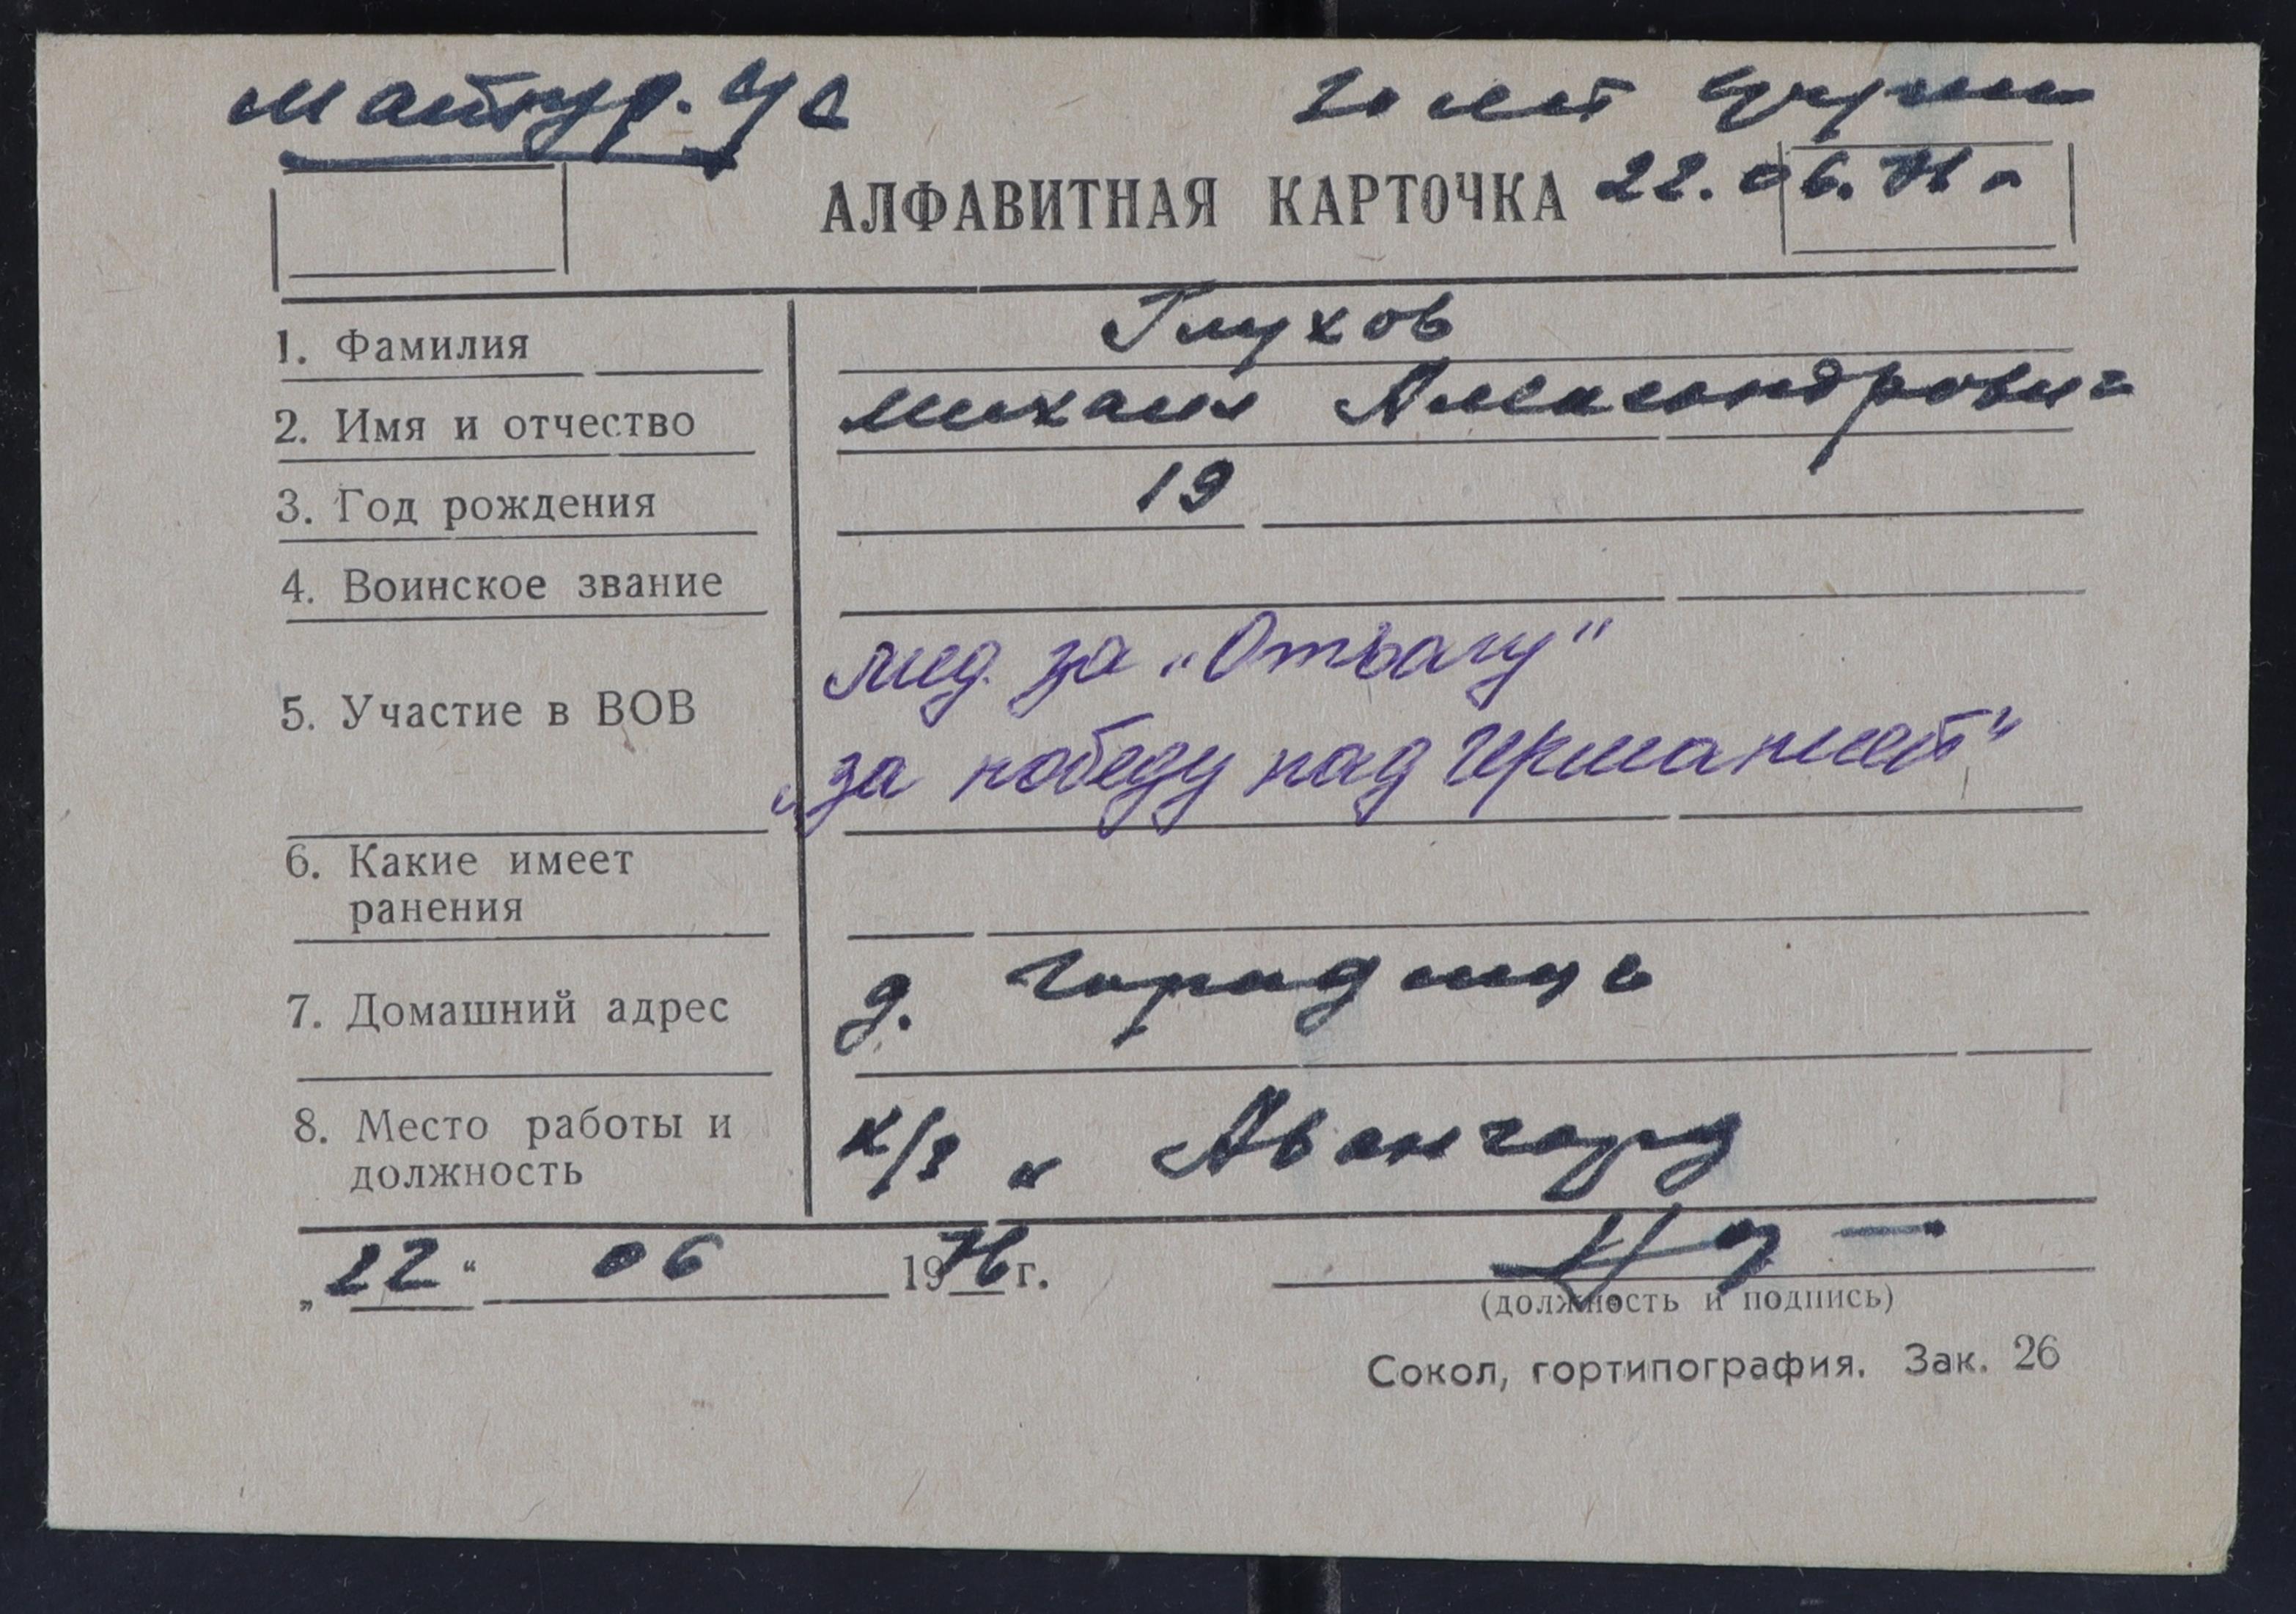 Майкур. с/с
АЛФАВИТНАЯ КАРТОЧКА 22.06.76 г
1. Фамилия Глухов
2. Имя и отчество Михаил Александрович
3. Год рождения 19
4. Воинское звание
5. Участие в ВОВ мед. за „Отвагу"
„за победу над Германией"
6. Какие имеет
ранения
7. Домашний адрес д. Городище
8. Место работы и к/з „ Авангард
должность
„22" 06 1976 г.
(должность и подпись)
Сокол, гортипография. Зак. 26